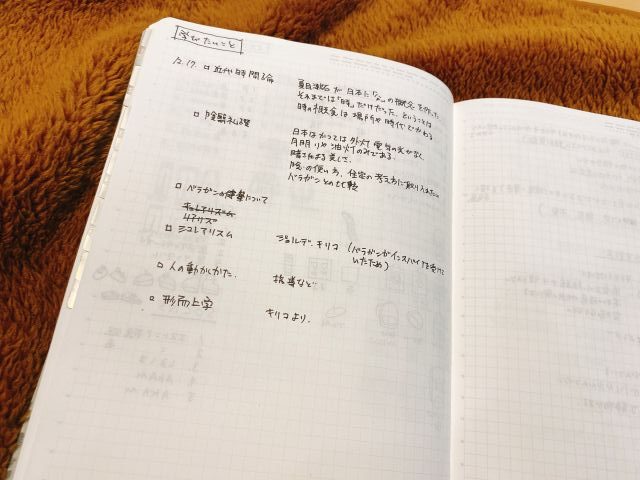 学びたいこと
12.17. □ 近代時間論 夏目漱石が日本に「今」の概念を作った
それまでは「時」だけだった、ということは
時の概念は場所や時代でかわる
□ 陰翳礼讃 日本はかつては外灯、電気の光がなく、
月明りや油灯のみである。
美しさ。
陰の使い方、住宅の考え方に取り入れたい
バラガンとの
□ バラガンの建築について
□ シュレアリスム ジョルデ・キリコ (バラガンがインスパイアを受けて
いたため)
□ 人の動かしかた. 指導など
□ 形而上学 キリコより.